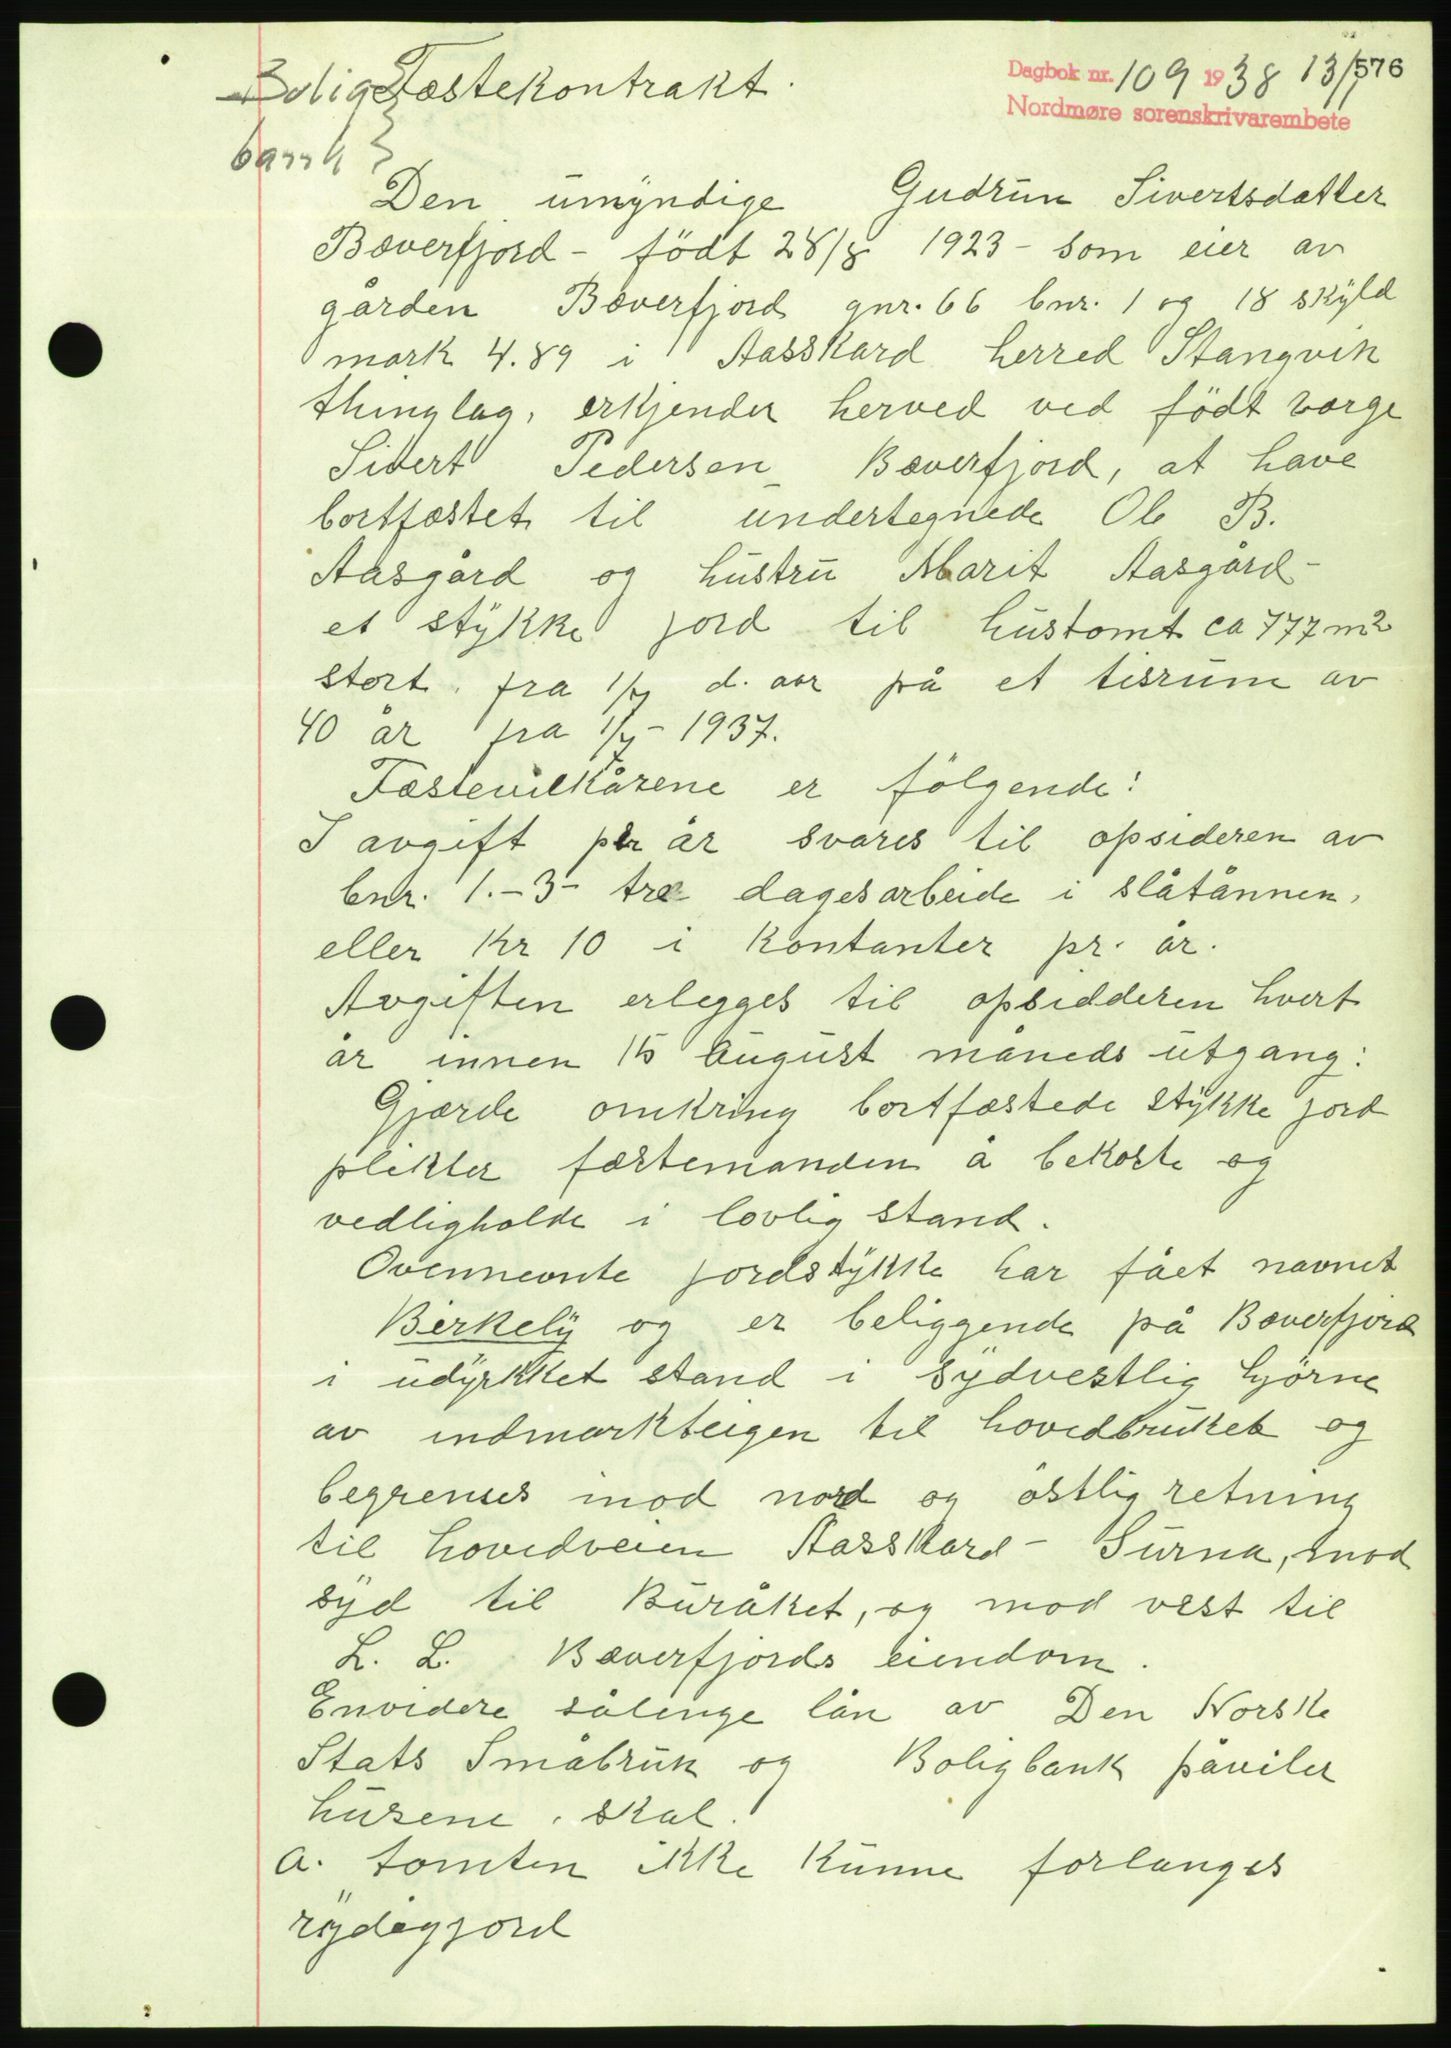 Dagbok nr. 109 1938 13/1 576
Nordmøre sorenskrivarembete
Bolig Fæstekontrakt.
bank
Den umyndige Gudrun Sivertsdatter
Bæverfjord - født 28/8 1923 - som eier av
gården Bæverfjord gnr. 66 bnr. 1 og 18 skyld
mark 4.89 i Aasskard herred Stangvik
thinglag, erkjender herved ved født værge
Sivert Pedersen Bæverfjord, at have
bortfæstet til undertegnede Ole B.
Aasgård og hustru Marit Aasgård -
et stykke jord til hustomt ca 777 m2
stort. fra 1/7 d. aar på et tisrum av
40 år fra 1/7 - 1937.
Fæstevilkårene er følgende:
I avgift per år svares til opsideren av
bnr. 1. - 3 - tre dagesarbeide i slåtånnen,
eller Kr 10 i kontanter pr. år.
Avgiften erlegges til opsidderen hvert
år innen 15 august måneds utgang:
Gjærde omkring bortfæstede stykke jord
plikter fæstemanden å bekoste og
vedligholde i lovlig stand.
Ovennevnte jordstykke har fået navnet
Birkely og er beliggende på Bæverfjord
i udyrkket stand i sydvestlig hjørne
av indmarkteigen til hovedbruket og
begrenses mod nord og østlig retning
til hovedveien Aasskard - Surna, mod
syd til Buråket, og mod vest til
L. L. Bæverfjords eiendom.
Envidere sålenge lån av Den Norske
Stats Småbruk og Boligbank påviler
husene, skal.
a. tomten ikke kunne forlanges
rydiggjord